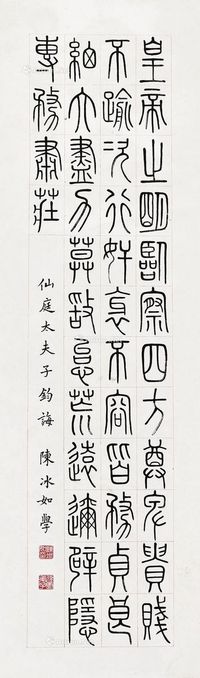 皇帝之明臨察四方尊卑貴賤
不踰次行奸衺不容皆務貞良
細大盡力莫敢怠荒遠邇辟隱
專務肅莊
仙庭太夫子鈞誨 陳冰如學